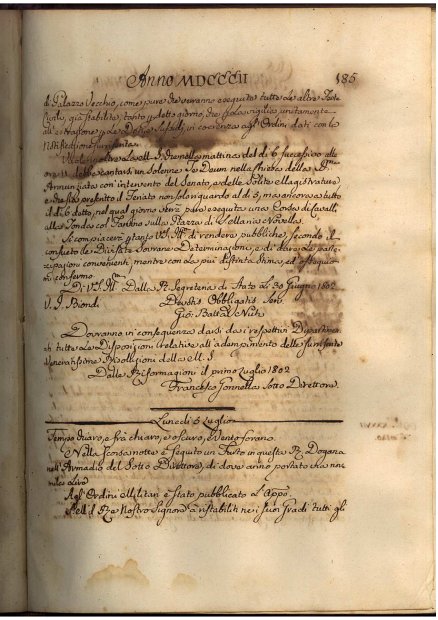 Anno MDCCCII 185
di Palazzo Vecchio, come pure che saranno eseguite tutte le altre Feste
solite, già stabilite, tanto detto giorno, che sola vigilia unitamente
all'estrazione delle Doti e Sussidj, in coerenza agl'Ordini dati con la
Notificazione
che nella mattina del dì 6 successivo alle
ore debbe cantarsi un Solenne Te Deum nella Chiesa della SSma
Annunziata con intervento del Senato, e delle Solite Magistrature
e che sia presentito il Senato non solo riguardo al dì 5, ma ancora a tutto
il dì 6 detto, nel qual giorno sarà pure eseguita una Corsa di Cavalli
alla Tonda col Fantino sulla Piazza di S. Maria Novella.
Si compiacerà pertanto VS. Illma di rendere pubbliche, secondo il
consueto le Divisate Sovrane Determinazioni, e di darne le parte-
cipazioni convenienti, mentre con la più distinta stima, ed ossequio
mi confermo
Di VS. Illma Dalla R. Segreteria di Stato li 30 Giugno 1802
V. J. Biondi Devotis. Obbligatis. Serv.
Gio: Batta Nuti
Dovranno in conseguenza darsi da i respettivi Dipartimen-
ti tutte le Disposizioni relative all'adempimento delle surriferite
Veneratissime Risoluzioni della M. S.
Dalle Riformagioni il primo Luglio 1802
Francesco Gonnella Sotto Direttore
Lunedì 5 Luglio
Tempo chiaro, e fra chiaro, e oscuro, e Vento forano.
Nella scorsa notte è seguito un Furto in questa R. Dogana
nell'Armadio del Sotto Direttore, di dove anno portato via
mila Lire
Agl'Ordini Militari è stato pubblicato l'Appo.
S. M. il Re Nostro Signore à ristabiliti nei suoi Gradi tutti gli